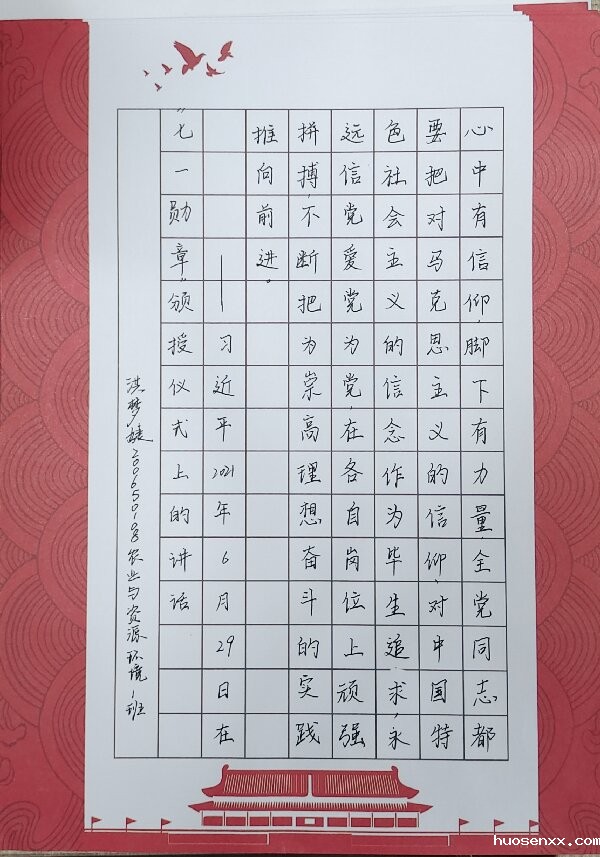 心中有信仰,脚下有力量全党同志都
要把对马克思主义的信仰、对中国特
色社会主义的信念作为毕生追求,永
远信党爱党为党,在各自岗位上顽强
拼搏,不断把为崇高理想奋斗的实践
推向前进。
——习近平2021年6月29日在
“七一勋章”颁授仪式上的讲话
200650108农业与资源环境1班
huosenxx.com